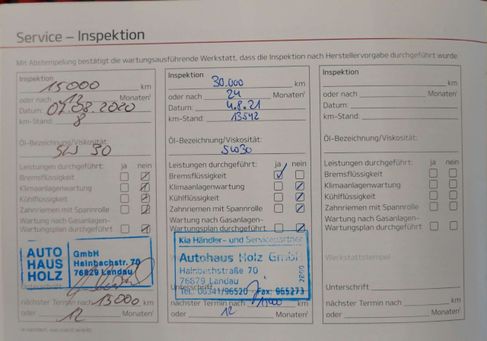 Service – Inspektion
Mit Abstempelung bestätigt die wartungsausführende Werkstatt, dass die Inspektion nach Herstellervorgabe durchgeführt wurde
Inspektion
15000 km
oder nach 12 Monaten
Datum: 07.08.2020
km-Stand: 8
Öl-Bezeichnung/Viskosität:
5W30
Leistungen durchgeführt: ja nein
Bremsflüssigkeit
Klimaanlagenwartung
Kühlflüssigkeit
Zahnriemen mit Spannrolle
Wartung nach Gasanlagen-
Wartungsplan durchgeführt
AUTO HAUS HOLZ
GmbH
Hainbachstr. 70
76829 Landau
nächster Termin nach 13000 km
oder 12 Monaten
Inspektion
30.000 km
oder nach 24 Monaten
Datum: 4.8.21
km-Stand: 13542
Öl-Bezeichnung/Viskosität:
5W30
Leistungen durchgeführt: ja nein
Bremsflüssigkeit
Klimaanlagenwartung
Kühlflüssigkeit
Zahnriemen mit Spannrolle
Wartung nach Gasanlagen-
Wartungsplan durchgeführt
Kia Händler- und Servicepartner
Autohaus Holz GmbH
Hainbachstraße 70
76829 Landau
Tel. 06341/96520 Fax: 965273
Unterschrift
nächster Termin nach km
oder 12 Monaten
Inspektion
km
oder nach Monaten
Datum:
km-Stand:
Öl-Bezeichnung/Viskosität:
Leistungen durchgeführt: ja nein
Bremsflüssigkeit
Klimaanlagenwartung
Kühlflüssigkeit
Zahnriemen mit Spannrolle
Wartung nach Gasanlagen-
Wartungsplan durchgeführt
Werkstattstempel
Unterschrift
nächster Termin nach km
oder Monaten